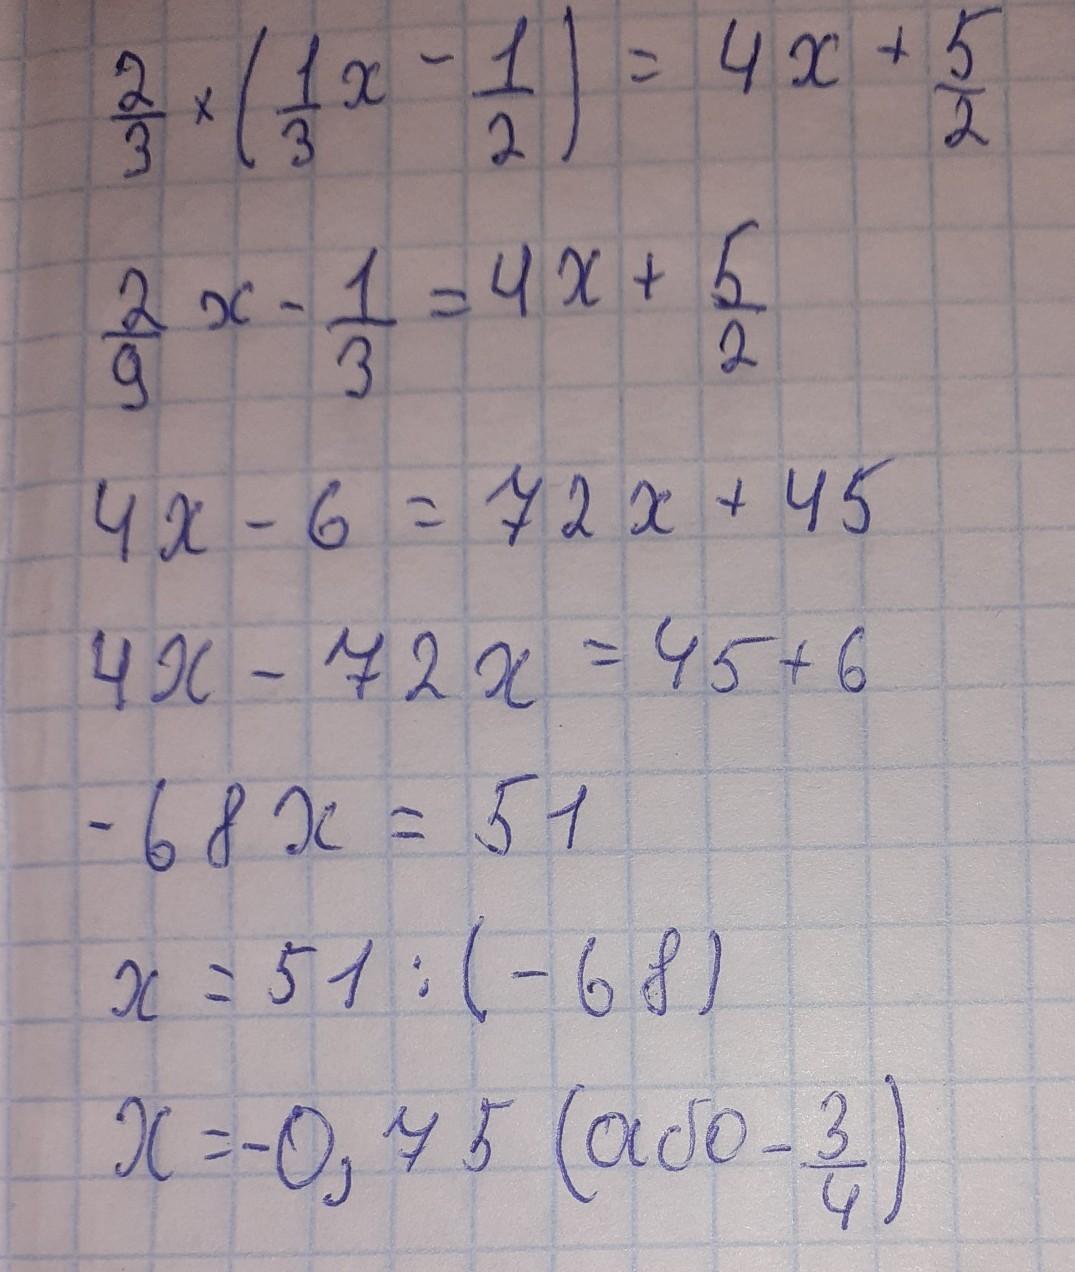 2/3 × (1/3 x - 1/2) = 4x + 5/2
2/9 x - 1/3 = 4x + 5/2
4x - 6 = 72x + 45
4x - 72x = 45 + 6
-68x = 51
x = 51 : (-68)
x = -0,75 (або - 3/4)